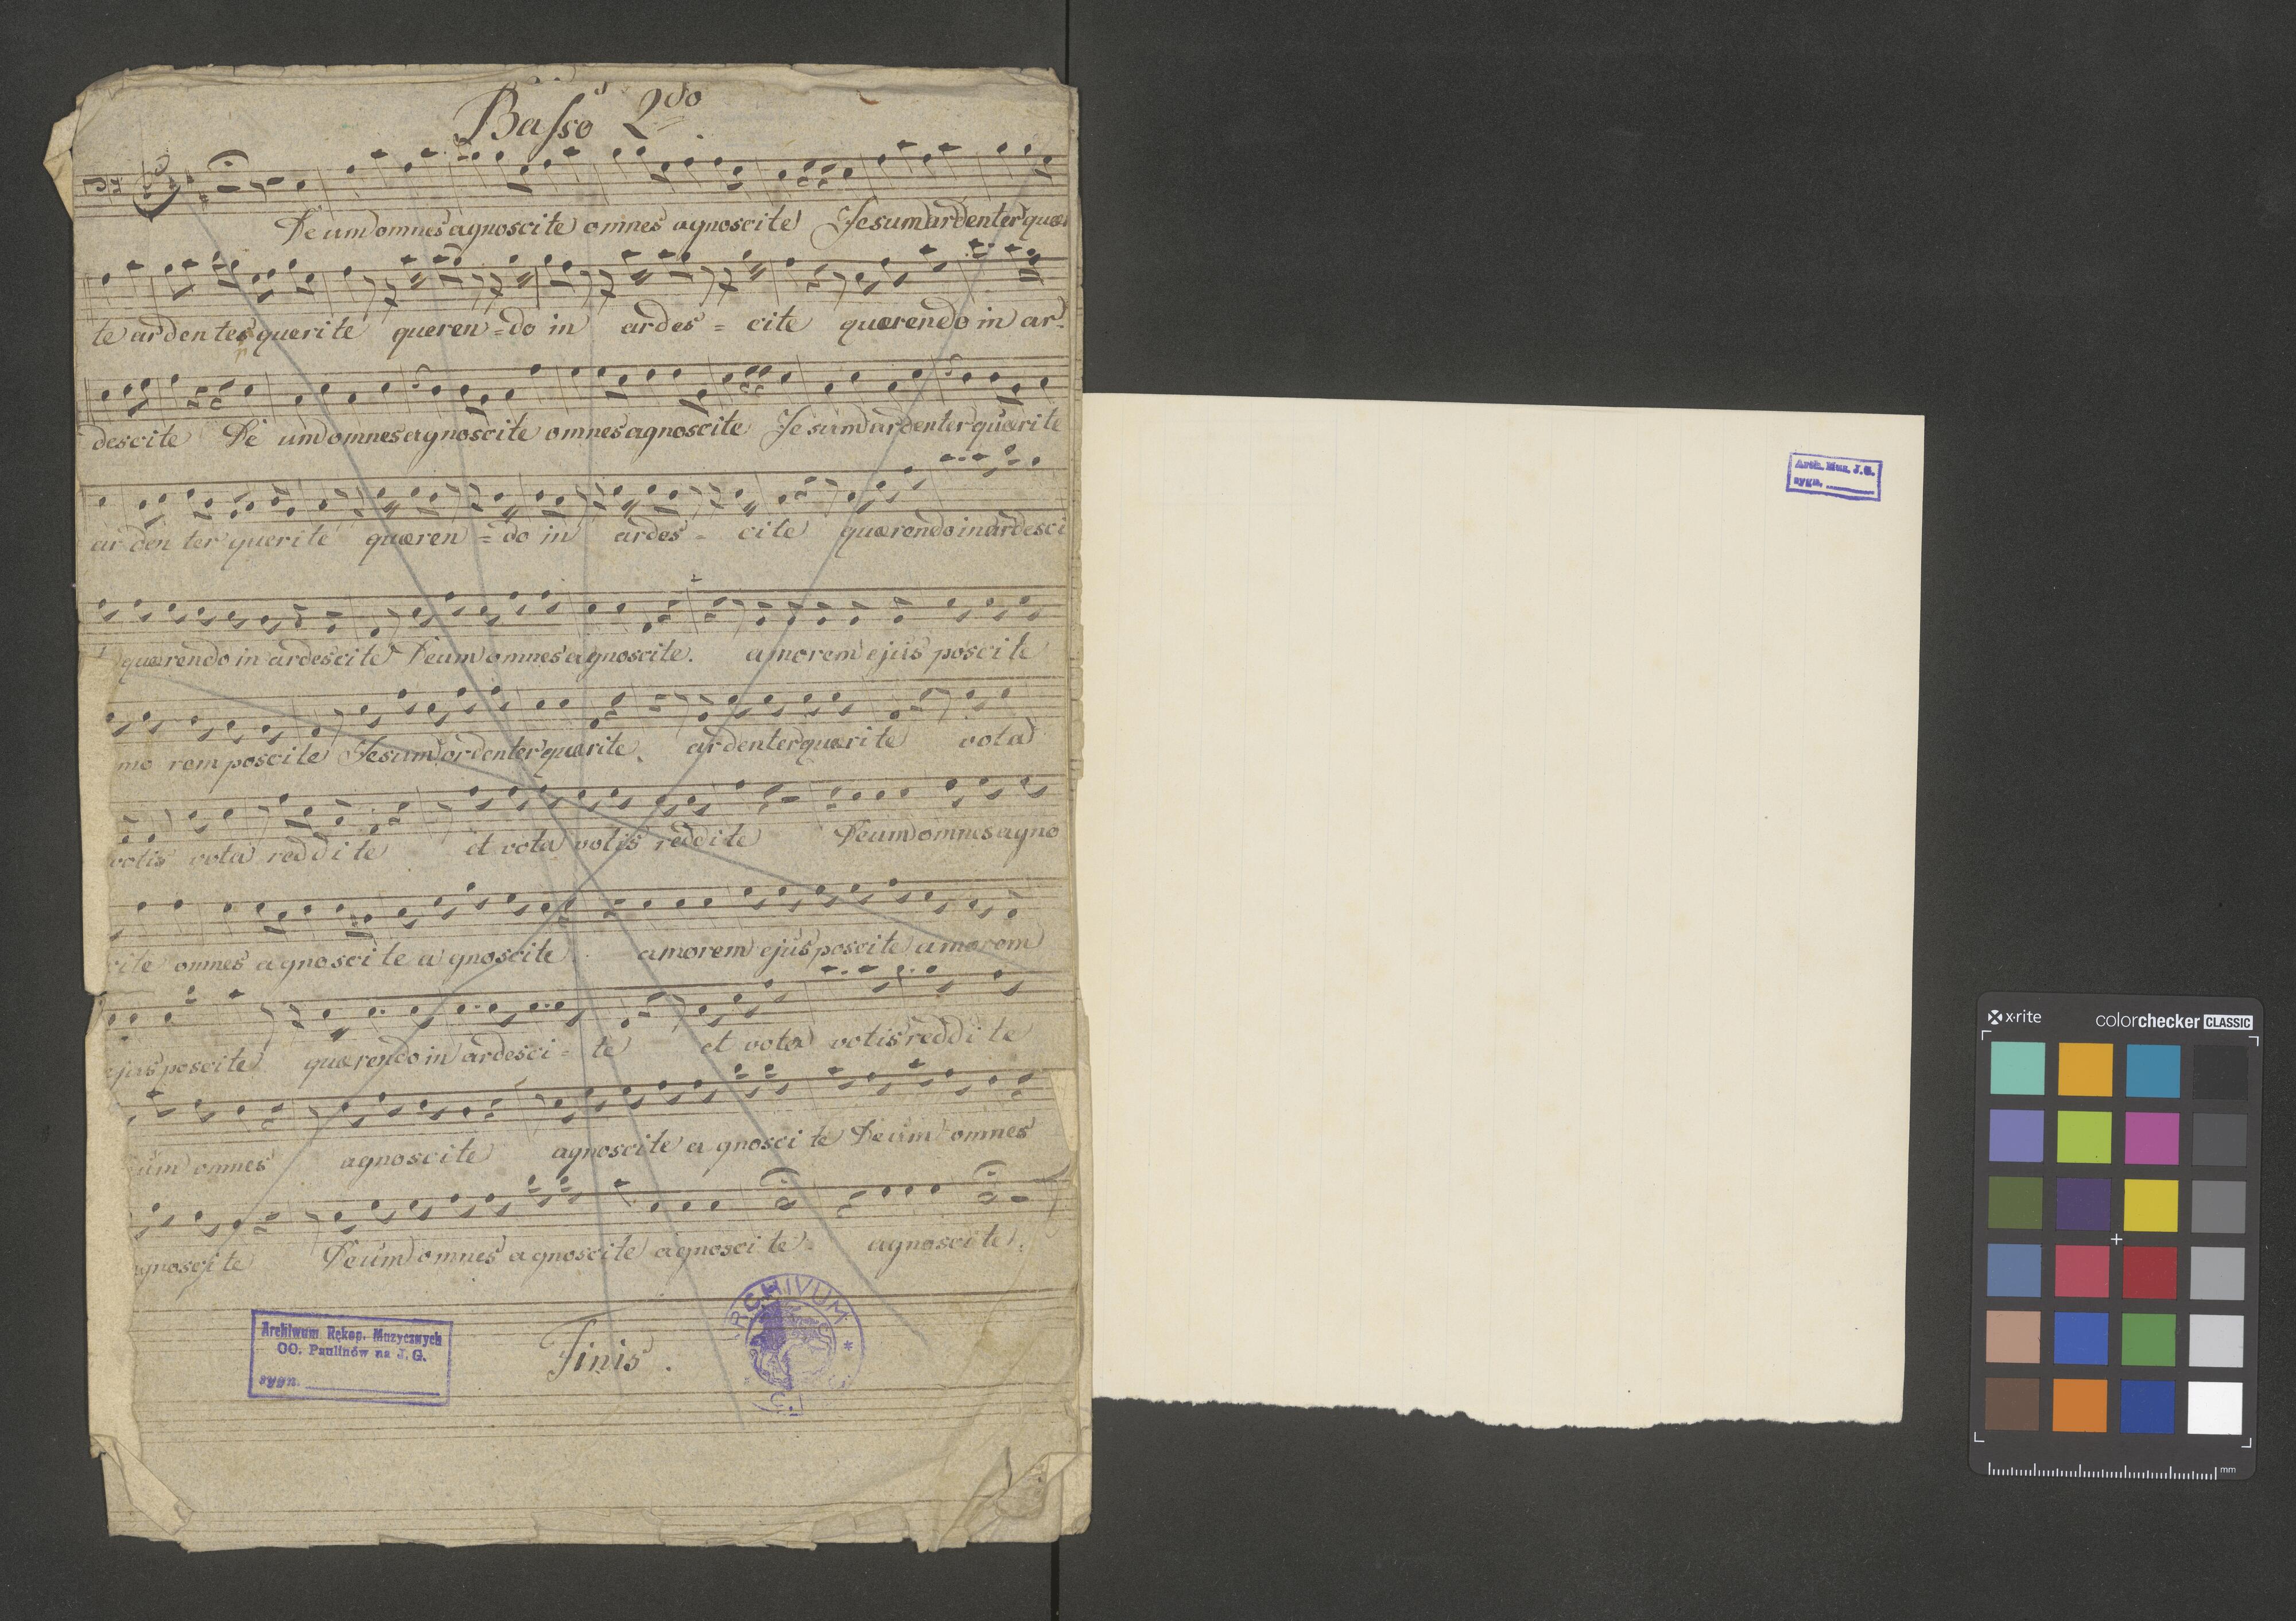 Basso 2do.
Deum omnes agnoscite omnes agnoscite Jesum ardenter quæri
te ardenter querite queren=do in ardes = cite quærendo in ar-
descite De um omnes agnoscite omnes agnoscite Jesum ardenter quærite
arden ter querite quæren =do in ardes - cite quærendo in ardesci
quærendo in ardescite Deum omnes agnoscite. amorem ejus poscite
mo rem poscite Jesum ardenter quærite. ardenter quærite vota
votis vota reddite et vota votis reddite Deum omnes agno
cite omnes agnoscite agnoscite. amorem ejus poscite amorem
ejus poscite quærendo in ardesci = te et vota votis reddite
um omnes agnoscite agnoscite agnoscite Deum omnes
gnoscite Deum omnes agnoscite agnoscite. agnoscite.
Finis.
Archiwum Rękop. Muzycznych
OO. Paulinów na J. G.
sygn.
ARCHIVUM
Arch. Muz. J.G.
sygn.
x-rite colorchecker CLASSIC
mm